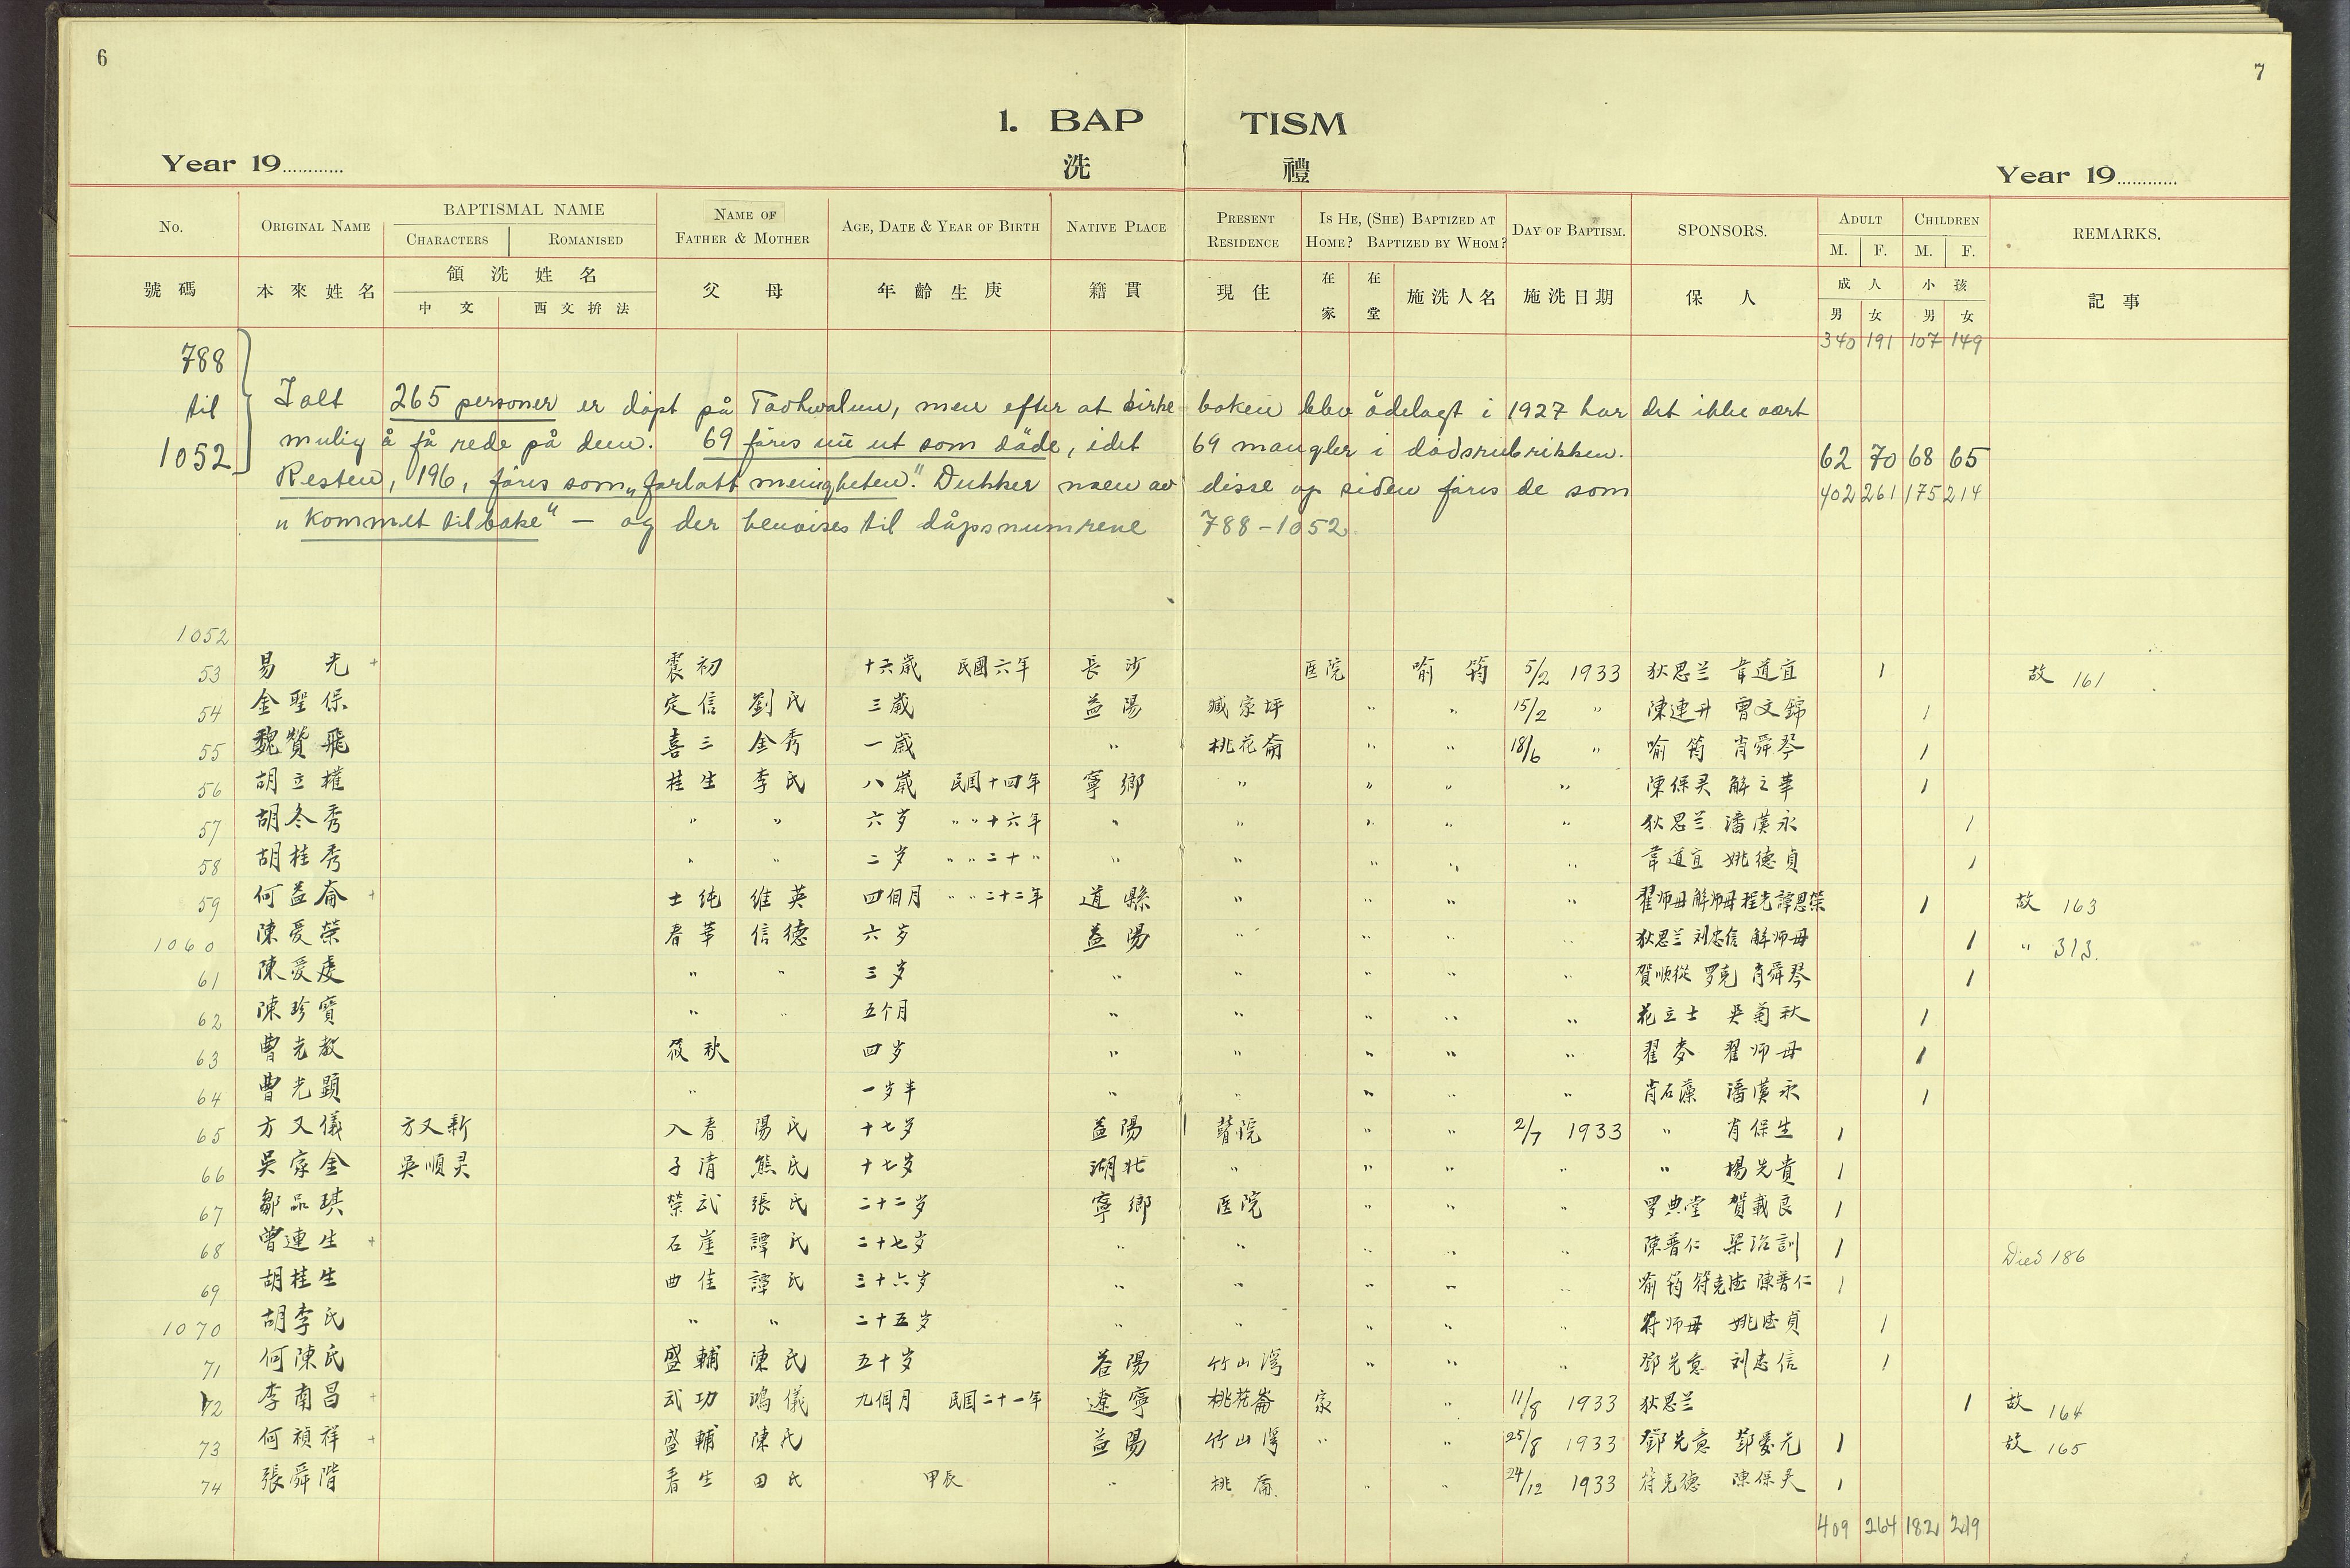 6
7
1. BAP TISM
洗 禮
Year 19............ Year 19............
No. ORIGINAL NAME BAPTISMAL NAME NAME OF FATHER & MOTHER AGE, DATE & YEAR OF BIRTH NATIVE PLACE PRESENT RESIDENCE IS HE, (SHE) BAPTIZED AT HOME? BAPTIZED BY WHOM? DAY OF BAPTISM. SPONSORS. ADULT CHILDREN REMARKS.
CHARACTERS ROMANISED M. F. M. F.
號碼 本來姓名 領洗姓名 父母 年齡生庚 籍貫 現住 在家 在堂 施洗人名 施洗日期 保人 成人 小孩 記事
中文 西文拚法 男 女 男 女
340 191 107 149
788 til 1052
Ialt 265 personer er döpt på Taohwalun, men efter at kirkeboken blev ödelagt i 1927 har det ikke vært
mulig å få rede på dem. 69 föres nu ut som döde, idet 69 mangler i dödsrubrikken. 62 70 68 65
Resten, 196, föres som „forlatt menigheten". Dukker noen av disse op siden föres de som 402 261 175 214
„Kommet tilbake" — og der henvises til dåpsnumrene 788-1052
1052
53 易光 + 震初 十六歳 民國六年 長沙 医院 喻筠 5/2 1933 狄思兰 韋道宜 1 故 161
54 金聖保 定信 劉氏 三歳 益陽 臧家坪 " " 15/2 " 陳連升 曾文錦 1
55 魏贊飛 喜三 金秀 一歳 " 桃花崙 " " 18/6 " 喻筠 肖舜琴 1
56 胡立權 桂生 李氏 八歳 民国十四年 寧鄉 " " " " 陳保灵 解之華 1
57 胡冬秀 " " 六岁 " " 十六年 " " " " " 狄思兰 潘漢永 1
58 胡桂秀 " " 二岁 " " 二十 " " " " " " 韋道宜 姚德貞 1
59 何益崙 + 士纯 维英 四個月 " " 二十二年 道縣 " " " " 翟师母 解师母 程光 譚恩榮 1 故 163
1060 陳爱榮 春華 信德 六岁 益陽 " " " " 狄思兰 刘忠信 解师母 1 " 313.
61 陳爱虔 " " 三岁 " " " " " 賀順從 罗克 肖舜琴 1
62 陳珍寶 " " 五个月 " " " " " 花立士 吳菊秋 1
63 曹光教 筱秋 四岁 " " " " " 翟麥 翟师母 1
64 曹光顕 " 一岁半 " " " " " 肖石藻 潘漢永 1
65 方又儀 方又新 入春 陽氏 十七岁 益陽 瞽院 " " 2/7 1933 " 肖保生 1
66 吳家金 吳順灵 子清 熊氏 十七岁 湖北 " " " " " 楊光貴 1
67 鄒品琪 榮武 張氏 二十二岁 寧鄉 医院 " " " 罗典堂 賀載良 1
68 曾連生 + 石崖 譚氏 二十七岁 " " " " " 陳普仁 梁治訓 1 Died 186
69 胡桂生 曲佳 譚氏 三十六岁 " " " " " 喻筠 符克德 陳普仁 1
1070 胡李氏 " " 二十五岁 " " " " " 符师母 姚德貞 1
71 何陳氏 盛輔 陳氏 五十岁 益陽 竹山灣 " " " 鄧光意 刘忠信 1
72 李南昌 + 武功 鴻儀 九個月 民国二十一年 遼寧 桃花崙 家 " 11/8 1933 狄思兰 1 故 164
73 何禎祥 + 盛輔 陳氏 益陽 竹山灣 " " 25/8 1933 鄧光意 鄧爱元 1 故 165
74 張舜階 春生 田氏 甲辰 " 桃崙 " " 24/12 1933 符克德 陳保灵 1
409 264 182 219